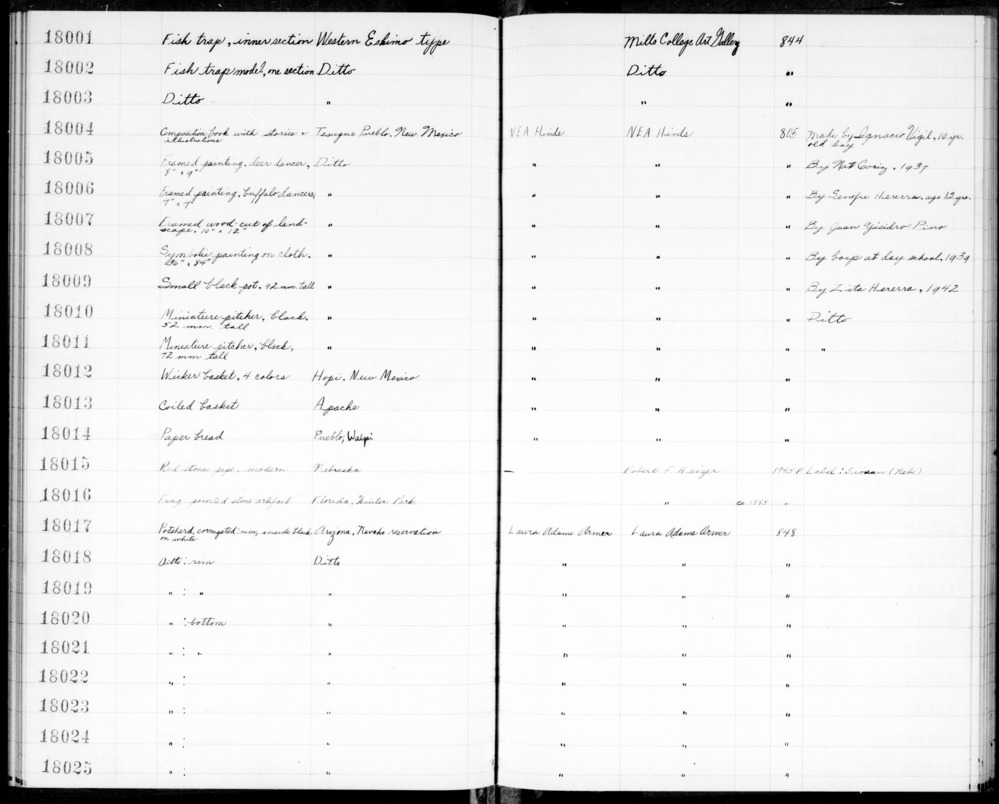 18001 Fish trap, inner section Western Eskimo type Mills College Art Gallery 844
18002 Fish trap model, one section Ditto Ditto "
18003 Ditto " " "
18004 Composition book with stories + Tesuque Pueblo, New Mexico N.E.A. Hinds N.E.A. Hinds 805 Made by Ignacio Vigil, 10 yr.
illustrations old boy
18005 Framed painting, deer dancer, Ditto " " " By Nat 1937
8" x 9"
18006 Framed painting, buffalo dancers, " " " " By Hererra, age 12 yrs.
7" x 7"
18007 Framed wood cut of land- " " " " By Juan Ysidro Pino
scape, 10" x 12"
18008 Symbolic painting on cloth, " " " " By boys at day school, 1939
36" x 84"
18009 Small black pot, 42 mm. tall " " " " By Zita Hererra, 1942
18010 Miniature pitcher, black, " " " " Ditto
52 mm. tall
18011 Miniature pitcher, black, " " " " "
72 mm. tall
18012 Wicker basket, 4 colors Hopi, New Mexico " " "
18013 Coiled basket Apache " " "
18014 Paper bread Pueblo, Walpi " " "
18015 Red stone pipe, modern Nebraska — Robert F. Heizer Label:
18016 Frag. pointed stone artifact Florida, Winter Park " ca 1885 "
18017 Potsherd, corrugated rim, inside black Arizona, Navaho reservation Laura Adams Armer Laura Adams Armer 848
on white
18018 Ditto: rim Ditto " " "
18019 " : " " " " "
18020 " : bottom " " " "
18021 " : " " " " "
18022 " : " " " "
18023 " : " " " "
18024 " : " " " "
18025 " : " " " "